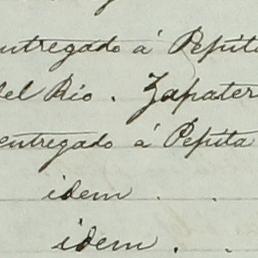 entregado á Pepita
del Rio. Zapater
entregado á Pepita
idem . .
idem . .